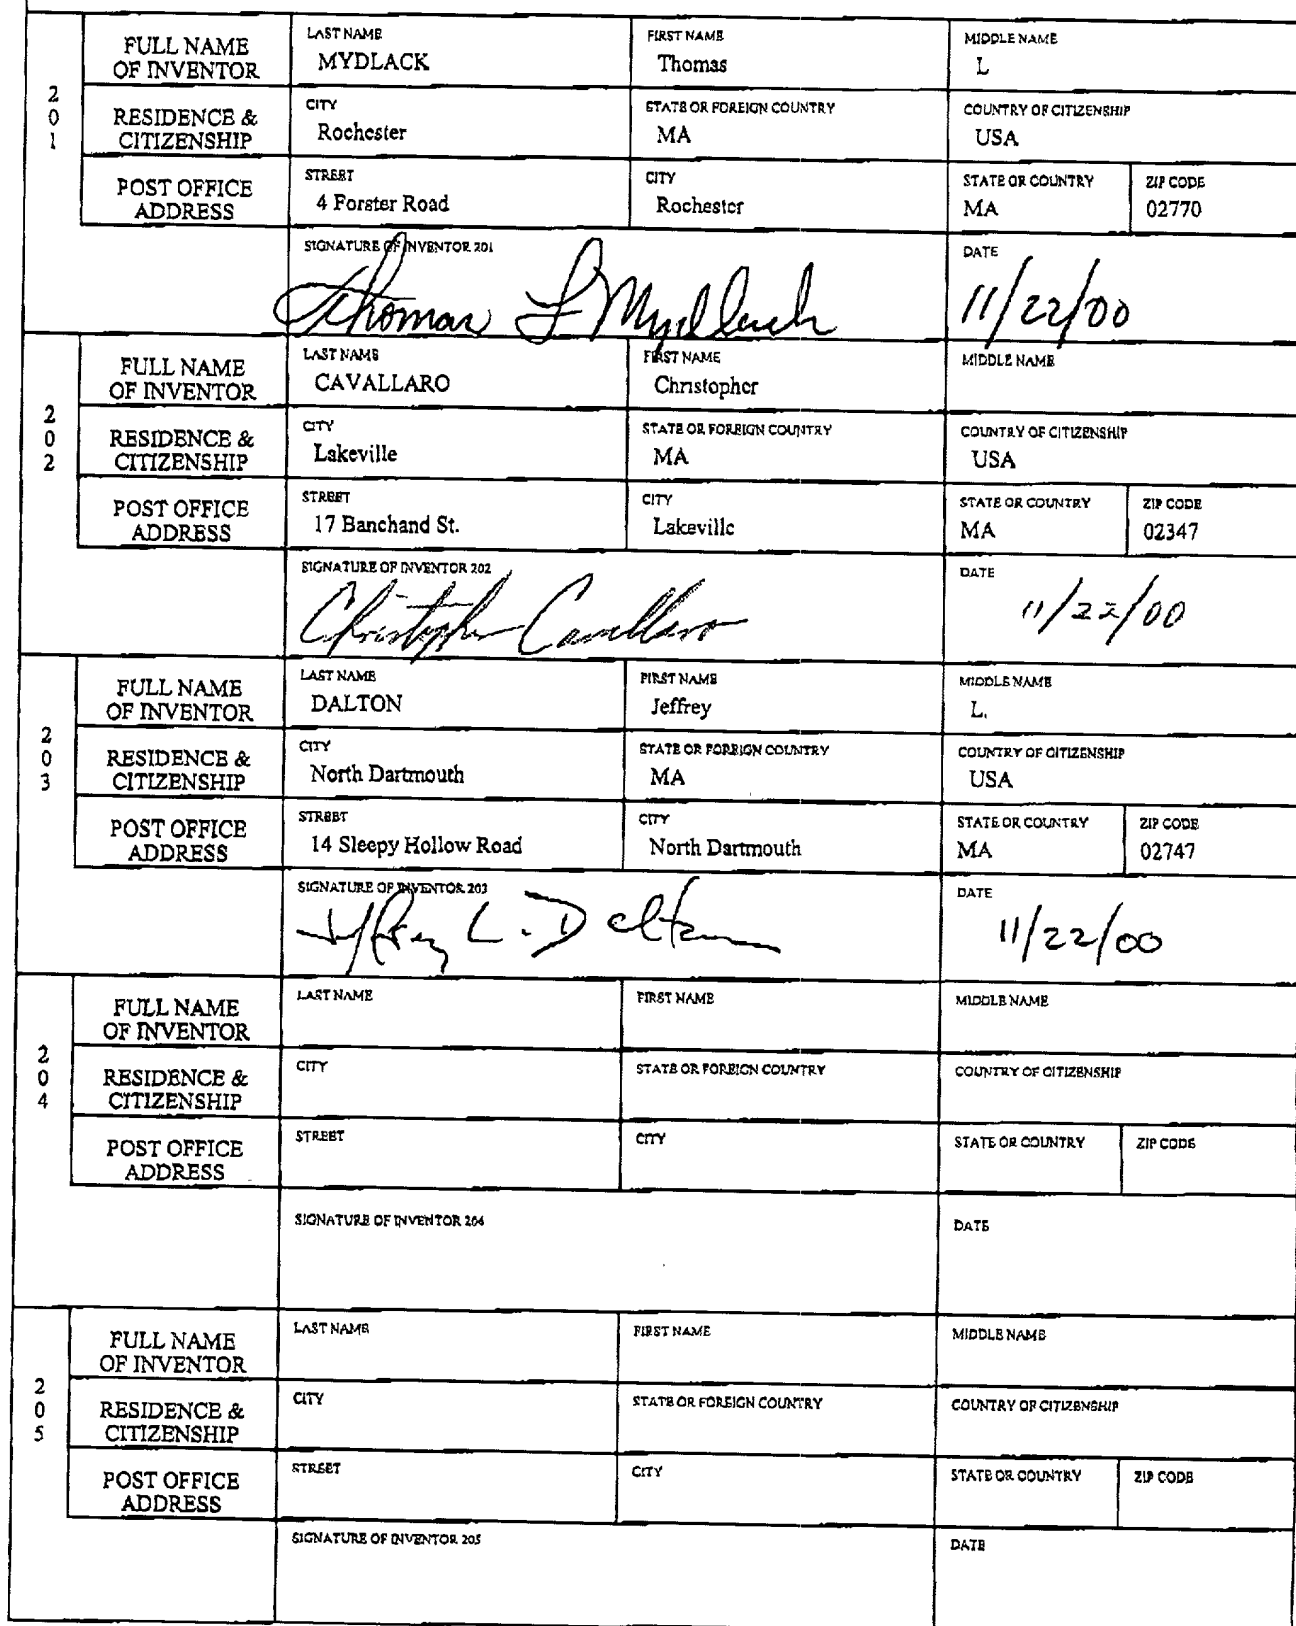 201
FULL NAME OF INVENTOR
LAST NAME
MYDLACK
FIRST NAME
Thomas
MIDDLE NAME
L
RESIDENCE & CITIZENSHIP
CITY
Rochester
STATE OR FOREIGN COUNTRY
MA
COUNTRY OF CITIZENSHIP
USA
POST OFFICE ADDRESS
STREET
4 Forster Road
CITY
Rochester
STATE OR COUNTRY
MA
ZIP CODE
02770
SIGNATURE OF INVENTOR 201
Thomas L Mydlack
DATE
11/22/00
202
FULL NAME OF INVENTOR
LAST NAME
CAVALLARO
FIRST NAME
Christopher
MIDDLE NAME
RESIDENCE & CITIZENSHIP
CITY
Lakeville
STATE OR FOREIGN COUNTRY
MA
COUNTRY OF CITIZENSHIP
USA
POST OFFICE ADDRESS
STREET
17 Banchand St.
CITY
Lakeville
STATE OR COUNTRY
MA
ZIP CODE
02347
SIGNATURE OF INVENTOR 202
Christopher Cavallaro
DATE
11/22/00
203
FULL NAME OF INVENTOR
LAST NAME
DALTON
FIRST NAME
Jeffrey
MIDDLE NAME
L.
RESIDENCE & CITIZENSHIP
CITY
North Dartmouth
STATE OR FOREIGN COUNTRY
MA
COUNTRY OF CITIZENSHIP
USA
POST OFFICE ADDRESS
STREET
14 Sleepy Hollow Road
CITY
North Dartmouth
STATE OR COUNTRY
MA
ZIP CODE
02747
SIGNATURE OF INVENTOR 203
Jeffrey L. Dalton
DATE
11/22/00
204
FULL NAME OF INVENTOR
LAST NAME
FIRST NAME
MIDDLE NAME
RESIDENCE & CITIZENSHIP
CITY
STATE OR FOREIGN COUNTRY
COUNTRY OF CITIZENSHIP
POST OFFICE ADDRESS
STREET
CITY
STATE OR COUNTRY
ZIP CODE
SIGNATURE OF INVENTOR 204
DATE
205
FULL NAME OF INVENTOR
LAST NAME
FIRST NAME
MIDDLE NAME
RESIDENCE & CITIZENSHIP
CITY
STATE OR FOREIGN COUNTRY
COUNTRY OF CITIZENSHIP
POST OFFICE ADDRESS
STREET
CITY
STATE OR COUNTRY
ZIP CODE
SIGNATURE OF INVENTOR 205
DATE